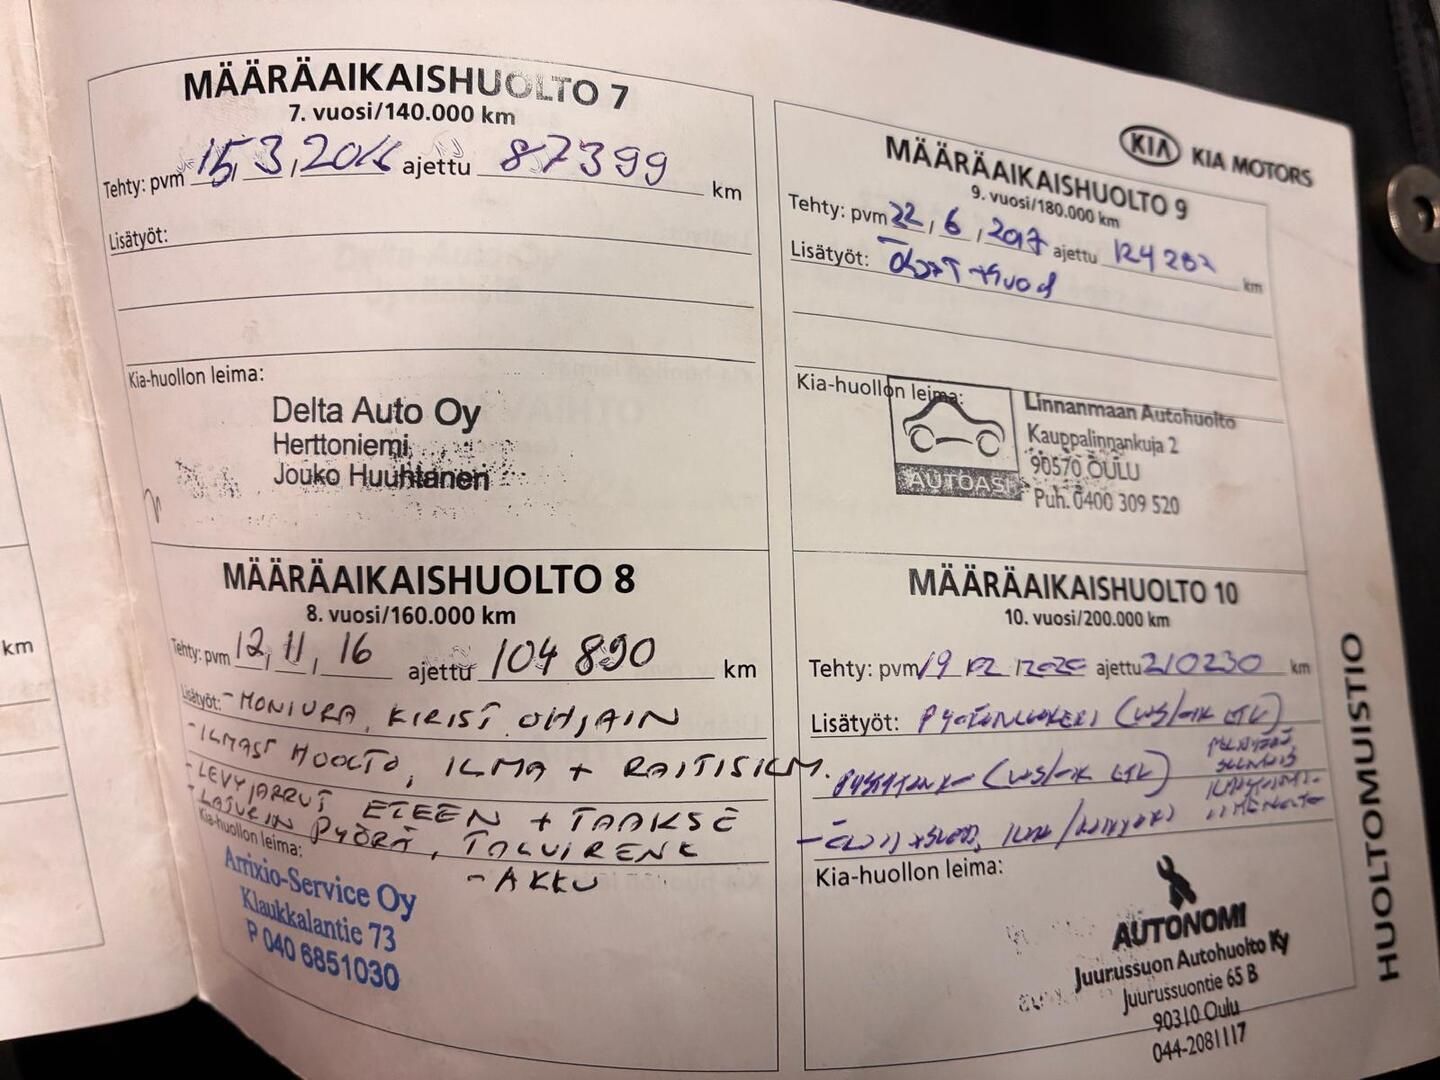 MÄÄRÄAIKAISHUOLTO 7
7. vuosi/140.000 km
Tehty: pvm 15,3,2016 ajettu 87399 km
Lisätyöt:
Kia-huollon leima:
Delta Auto Oy
Herttoniemi
Jouko Huuhtanen
MÄÄRÄAIKAISHUOLTO 8
8. vuosi/160.000 km
Tehty: pvm 12, 11, 16 ajettu 104 890 km
Lisätyöt: - MONIURA, KIRIST. OHJAIN
- ILMAST HUOLTO, ILMA + RAITISILM.
- LEVYJARRUT ETEEN + TAAKSE
- LATURIN PYÖRÄ, TALVIRENK
Kia-huollon leima:
- AKKU
Arrixio-Service Oy
Klaukkalantie 73
P 040 6851030
KIA KIA MOTORS
MÄÄRÄAIKAISHUOLTO 9
9. vuosi/180.000 km
Tehty: pvm 22,6,2017 ajettu 124282 km
Lisätyöt:
Kia-huollon leima:
AUTOASI
Linnanmaan Autohuolto
Kauppalinnankuja 2
90570 OULU
Puh. 0400 309 520
MÄÄRÄAIKAISHUOLTO 10
10. vuosi/200.000 km
Tehty: pvm 19 12 2020 ajettu 210230 km
Lisätyöt:
Kia-huollon leima:
AUTONOMI
Juurussuon Autohuolto Ky
Juurussuontie 65 B
90310 Oulu
044-2081117
HUOLTOMUISTIO
km